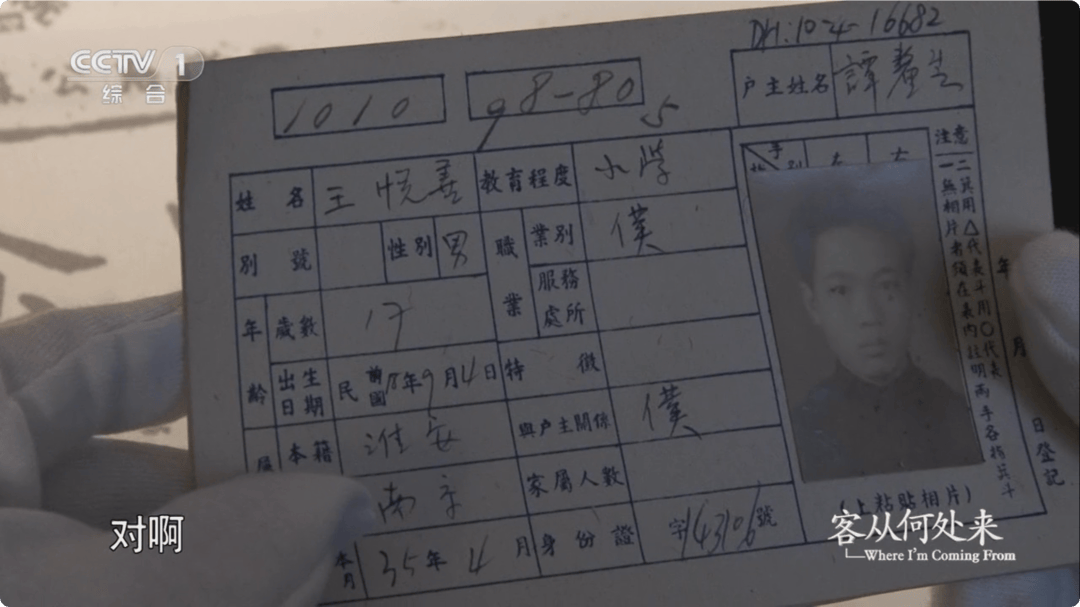 CCTV 1
综合
DH:10-4-16682
1010
98-805
户主姓名 譚
姓名 王悦善 教育程度 小學
別號 性別 男 職業 業別 僕
服務處所
年齡 歲數 17
出生日期 民國前 18年9月14日 特徵
本籍 淮安 與戶主關係 僕
南京 家屬人數
35年4月 身份證 字143106號
手
別 左 右
注意
一二
箕用△代表斗用○代表
無相片者須在表內註明兩手各指箕斗
(上粘貼相片)
年 月 日登記
对啊
客从何处来
Where I'm Coming From